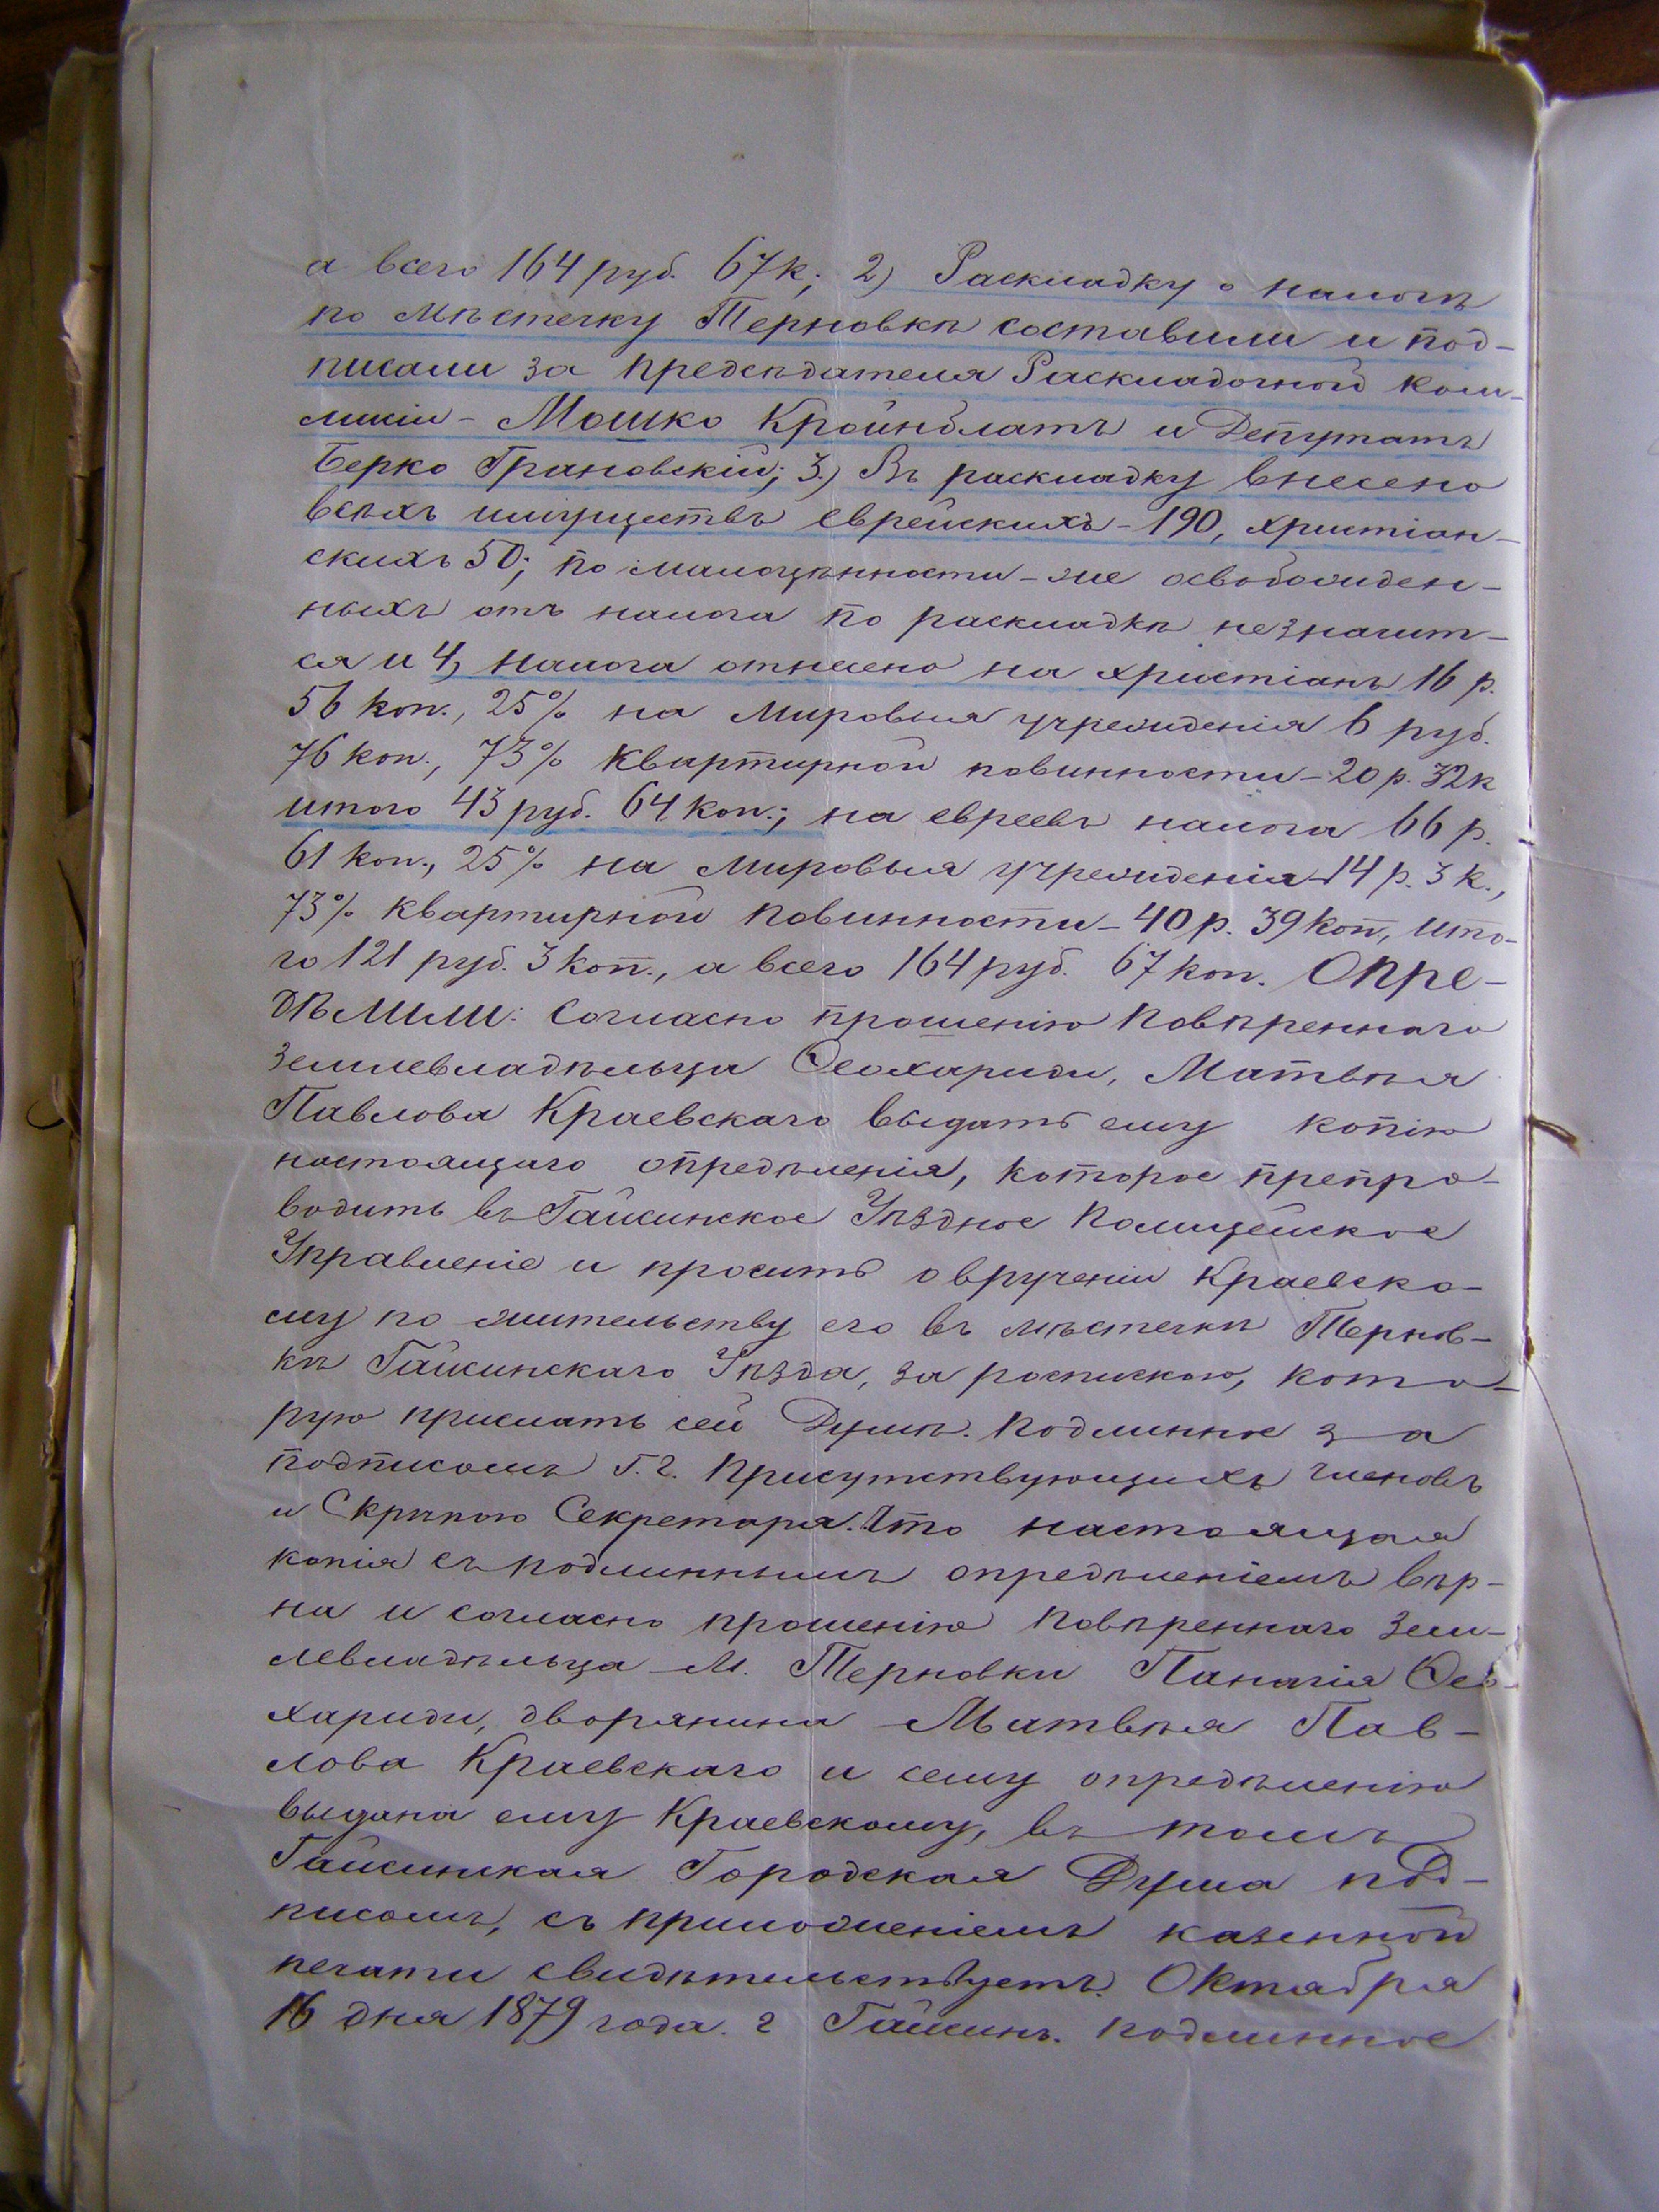 а всего 164 руб. 67 к; 2) Раскладку о налогѣ
по мѣстечку Терновкѣ составили и под-
писали за предсѣдателя Раскладочной Ком-
мисіи - Мошко Кройнблатъ и Депутатъ
Берко Грановскій; 3.) Въ раскладку внесено
всѣхъ имуществъ еврейскихъ - 190, христіан-
скихъ 50; по малоцѣнности - же освобожден-
ныхъ отъ налога по раскладкѣ незначит-
ся и 4, налога отнесено на христіанъ 16 р.
56 коп., 25% на мировыя учрежденія 6 руб.
76 коп., 73% квартирной повинности - 20 р. 32 к
итого 43 руб. 64 коп.; на евреевъ налога 66 р.
61 коп., 25% на мировыя учрежденія - 14 р. 3 к.,
73% квартирной повинности - 40 р. 39 коп, ито-
го 121 руб. 3 коп., а всего 164 руб. 67 коп. Опре-
дѣлили: Согласно прошенію повѣреннаго
землевладѣльца Ѳеохариди, Матвѣя
Павлова Краевскаго выдать ему копію
настоящаго опредѣленія, которое препро-
водить въ Гайсинское Уѣздное Полицейское
Управленіе и просить о врученіи Краевско-
му по жительству его въ мѣстечкѣ Тернов-
кѣ Гайсинскаго Уѣзда, за роспискою, кото-
рую прислать сей Думѣ. Подлинное за
подписомъ г. г. Присутствующихъ членовъ
и Скрѣпою Секретаря. Что настоящая
копія съ подлиннымъ опредѣленіемъ вѣр-
на и согласно прошенію повѣреннаго зем-
левладѣльца м. Терновки Панагія Ѳео-
хариди, дворянина Матвѣя Пав-
лова Краевскаго и сему опредѣленію
выдана ему Краевскому, въ томъ
Гайсинская Городская Дума под-
писомъ, съ приложеніемъ казенной
печати свидѣтельствуетъ. Октября
16 дня 1879 года. г Гайсинъ. Подлинное